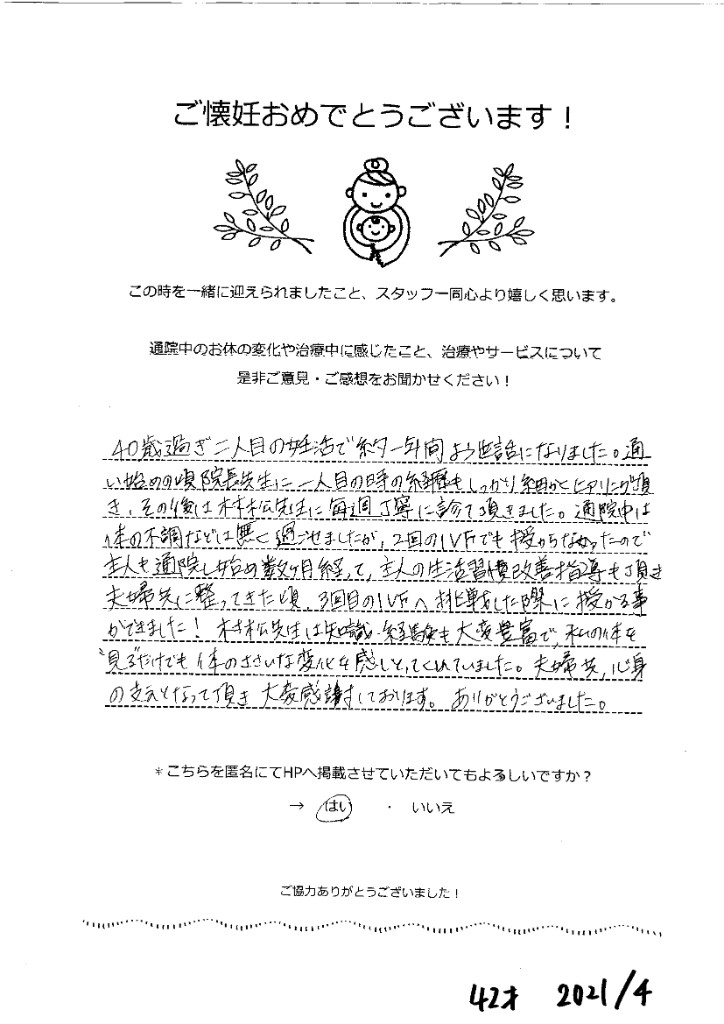 ご懐妊おめでとうございます！
この時を一緒に迎えられましたこと、スタッフ一同心より嬉しく思います。
通院中のお体の変化や治療中に感じたこと、治療やサービスについて
是非ご意見・ご感想をお聞かせください！
40歳過ぎ二人目の妊活で約一年間お世話になりました。通
い始めの頃院長先生に一人目の時の経歴もしっかり細かくヒアリング頂
き、その後は村松先生に毎週丁寧に診て頂きました。通院中は
体の不調などは無く過ごせましたが、2回のIVFでも授からなかったので
主人も通院し始め数ヶ月経って、主人の生活習慣改善指導も頂き
夫婦共に整ってきた頃、3回目のIVFへ挑戦した際に授かる事
ができました！村松先生は知識・経験も大変豊富で、私の体を
"見る"だけでも体のささいな変化を感じとってくれていました。夫婦共、心身
の支えとなって頂き大変感謝しております。ありがとうございました。
*こちらを匿名にてHPへ掲載させていただいてもよろしいですか？
→ はい ・ いいえ
ご協力ありがとうございました！
42才 2021/4